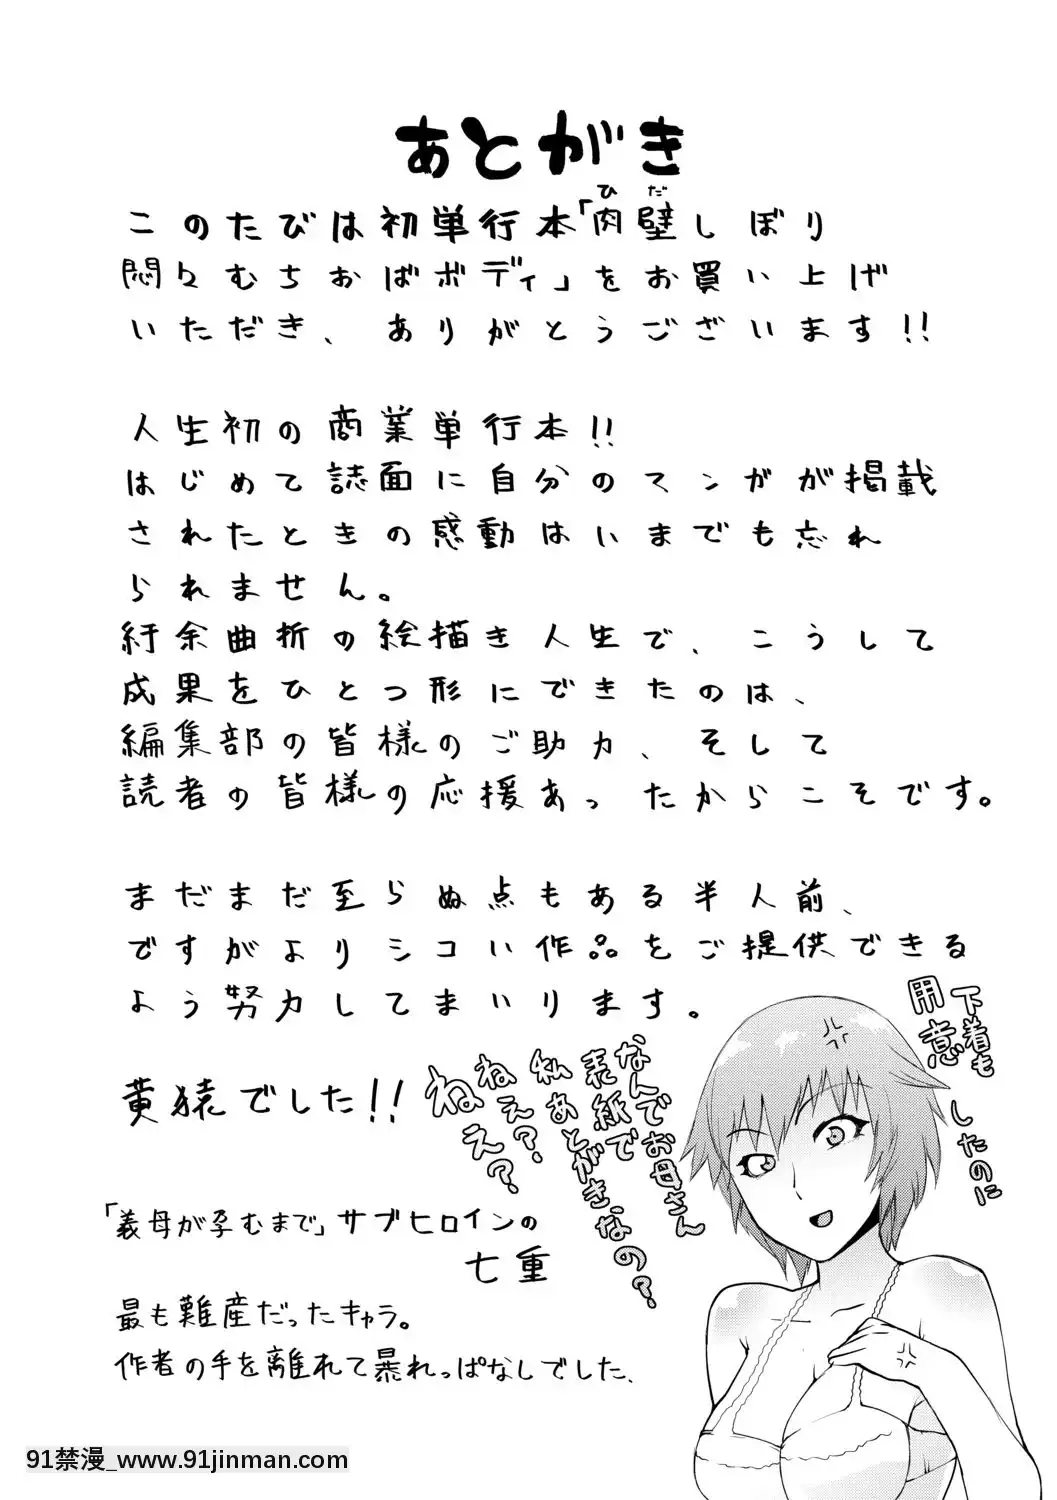 あとがき
このたびは初単行本「肉壁しぼり
ひだ
悶々むちおばボディ」をお買い上げ
いただき、ありがとうございます!!
人生初の商業単行本!!
はじめて誌面に自分のマンガが掲載
されたときの感動はいまでも忘れ
られません。
紆余曲折の絵描き人生で、こうして
成果をひとつ形にできたのは、
編集部の皆様のご助力、そして
読者の皆様の応援あったからこそです。
まだまだ至らぬ点もある半人前、
ですがよりシコい作品をご提供できる
よう努力してまいります。
黄猿でした!!
「義母が孕むまで」サブヒロインの
七重
最も難産だったキャラ。
作者の手を離れて暴れっぱなしでした、
下着も
用意
したのに
なんでお母さん
表紙で
私あとがきなの?
ねえ?
ねえ?
ねえ?
91禁漫_www.91jinman.com